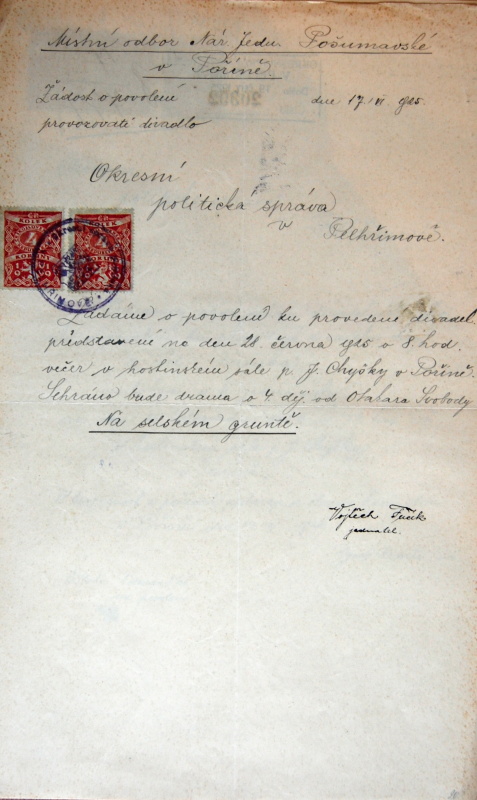 Místní odbor Nár. Jedn. Pošumavské
v Poříně.
Žádost o povolení
dne 17/VI 1925.
provozovati divadlo
20802
Okresní
politická správa
v
Pelhřimově.
ČS
ČS
KOLEK
KOLEK
KORUNY
KORUNA
Žádáme o povolení ku provedení divadel.
představení na den 28. června 1925 o 8 hod.
večer v hostinském sále p. J. Chyšky v Poříně.
Sehráno bude drama o 4 děj. od Otakara Svobody
Na selském gruntě.
Vojtěch Fučík
jednatel.